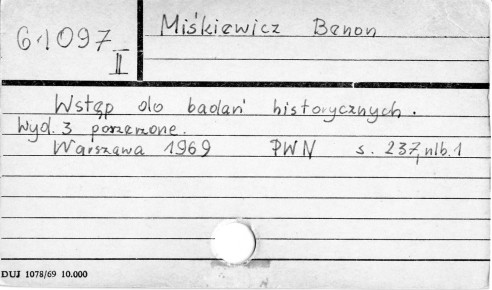 61097
II
Miśkiewicz Benon
Wstęp do badań historycznych.
Wyd. 3 poszerzone.
Warszawa 1969 PWN s. 237, nlb. 1
DUJ 1078/69 10.000